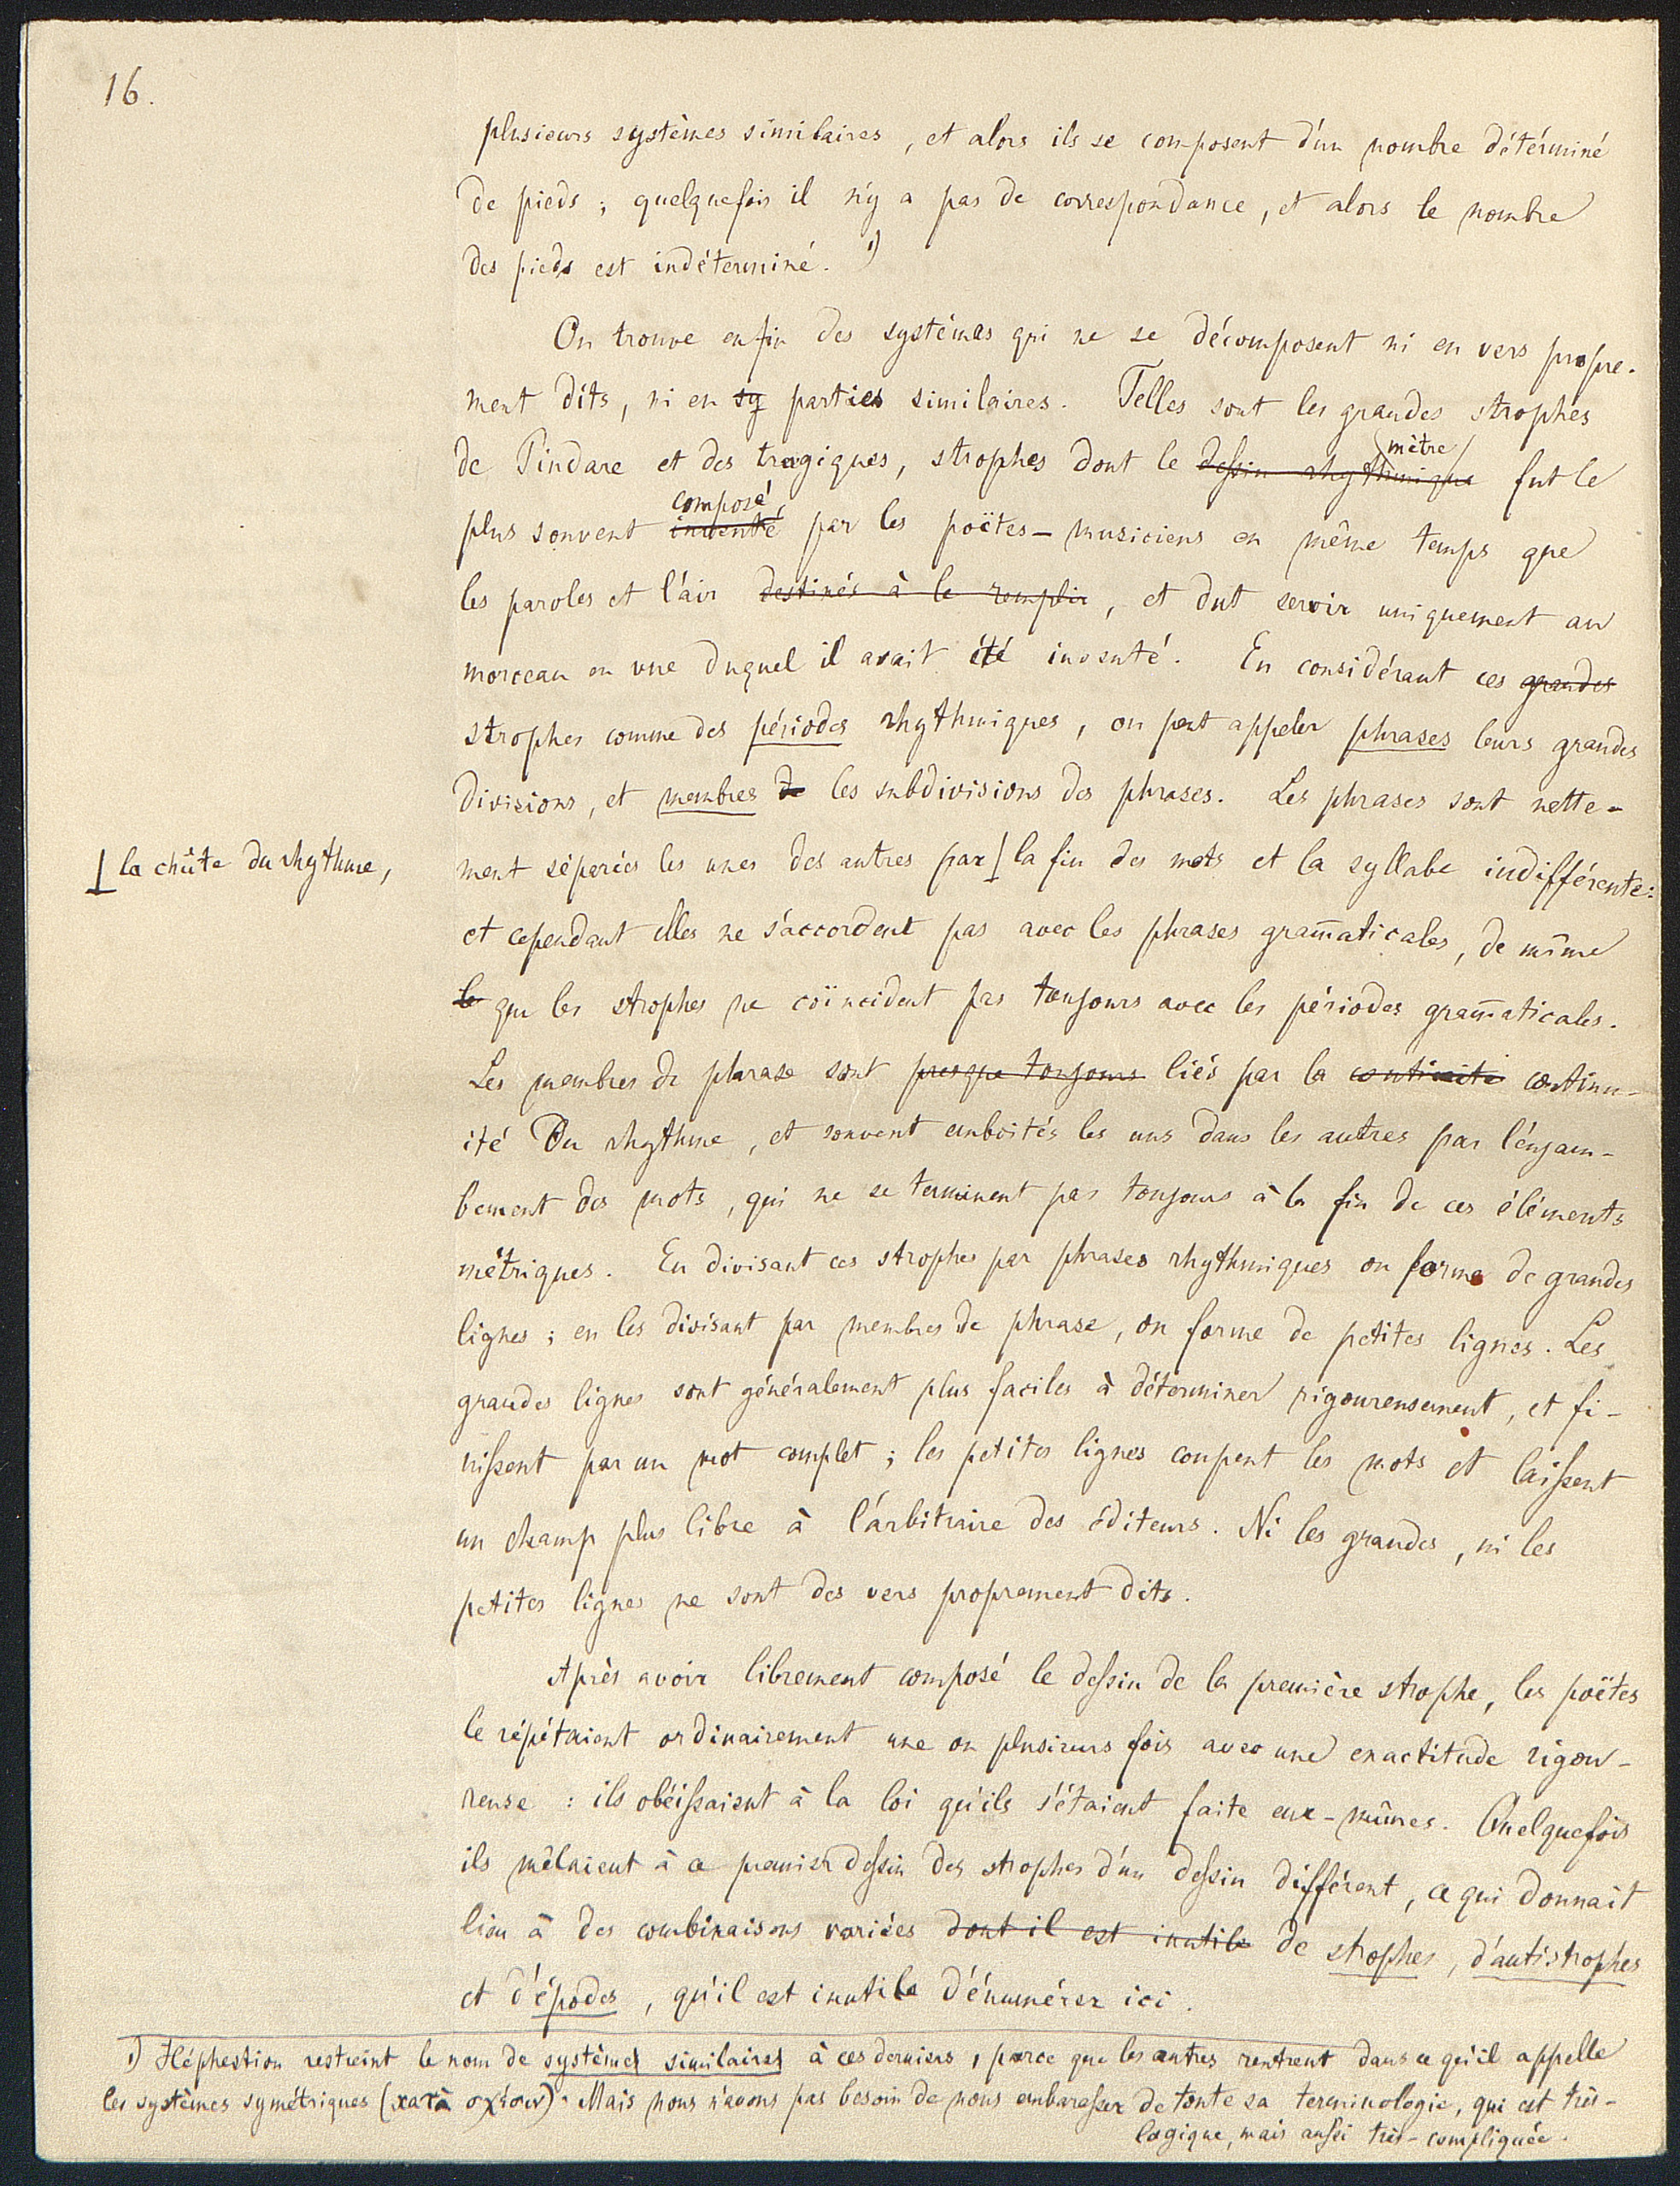 16.
plusieurs systèmes similaires, et alors ils se composent d'un nombre détérminé
de pieds; quelquefois il n'y a pas de correspondance, et alors le nombre
des pieds est indéterminé. 1)
On trouve enfin des systèmes qui ne se décomposent ni en vers propre-
ment dits, ni en sy parties similaires. Telles sont les grandes strophes
mètre
de Pindare et des tragiques, strophes dont le dessin rhythmique fut le
composé
plus souvent inventé par les poëtes-musiciens en même temps que
les paroles et l'air destinés à le remplir, et dut servir uniquement au
morceau en vue duquel il avait été inventé. En considérant ces grandes
strophes comme des périodes rhythmiques, on peut appeler phrases leurs grandes
divisions, et membres de les subdivisions des phrases. Les phrases sont nette-
la chûte du rhythme,
ment séparées les unes des autres par la fin des mots et la syllabe indifférente:
et cependant elles ne s'accordent pas avec les phrases gram̄aticales, de même
le que les strophes ne coïncident pas toujours avec les périodes gram̄aticales.
Les membres de phrase sont presque toujours liés par la continuité continu-
ité du rhythme, et souvent emboités les uns dans les autres par l'enjam-
bement des mots, qui ne se terminent pas toujours à la fin de ces éléments
métriques. En divisant ces strophes par phrases rhythmiques on forme de grandes
lignes; en les divisant par membres de phrase, on forme de petites lignes. Les
grandes lignes sont généralement plus faciles à déterminer rigoureusement, et fi-
nissent par un mot complet; les petites lignes coupent les mots et laissent
un champ plus libre à l'arbitraire des éditeurs. Ni les grandes, ni les
petites lignes ne sont des vers proprement dits.
Après avoir librement composé le dessin de la première strophe, les poëtes
le répétaient ordinairement une ou plusieurs fois avec une exactitude rigou-
reuse: ils obéissaient à la loi qu'ils s'étaient faite eux-mêmes. Quelquefois
ils mêlaient à ce premier dessin des strophes d'un dessin différent, ce qui donnait
lieu à des combinaisons variées dont il est inutile de strophes, d'antistrophes
et d'épodes, qu'il est inutile d'énumérer ici.
1) Héphestion restreint le nom de systèmes similaires à ces derniers, parce que les autres rentrent dans ce qu'il appelle
les systèmes symétriques (κατὰ σχέσιν). Mais nous n'avons pas besoin de nous embarasser de toute sa terminologie, qui est très-
logique, mais aussi très-compliquée.